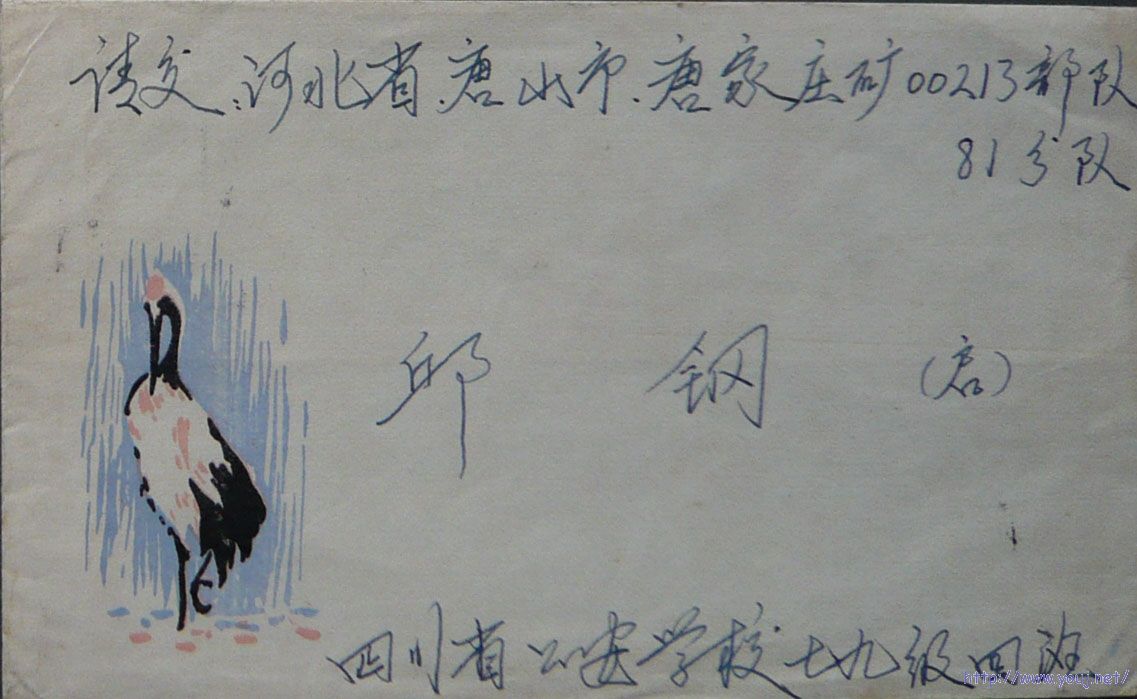 请交:河北省、唐山市、唐家庄矿00213部队
81分队
邱 钢 (启)
四川省公安学校七九级四
http://www.youj.net/